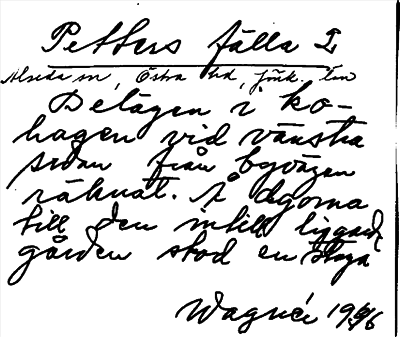 Petters fälla I
Alseda sn, Östra hd, Jönk. län
Belägen i ko-
hagen vid vänstra
sidan från byvägen
räknat. På ägorna
till den intill liggande
gården stod en stuga
Wagnér 1916